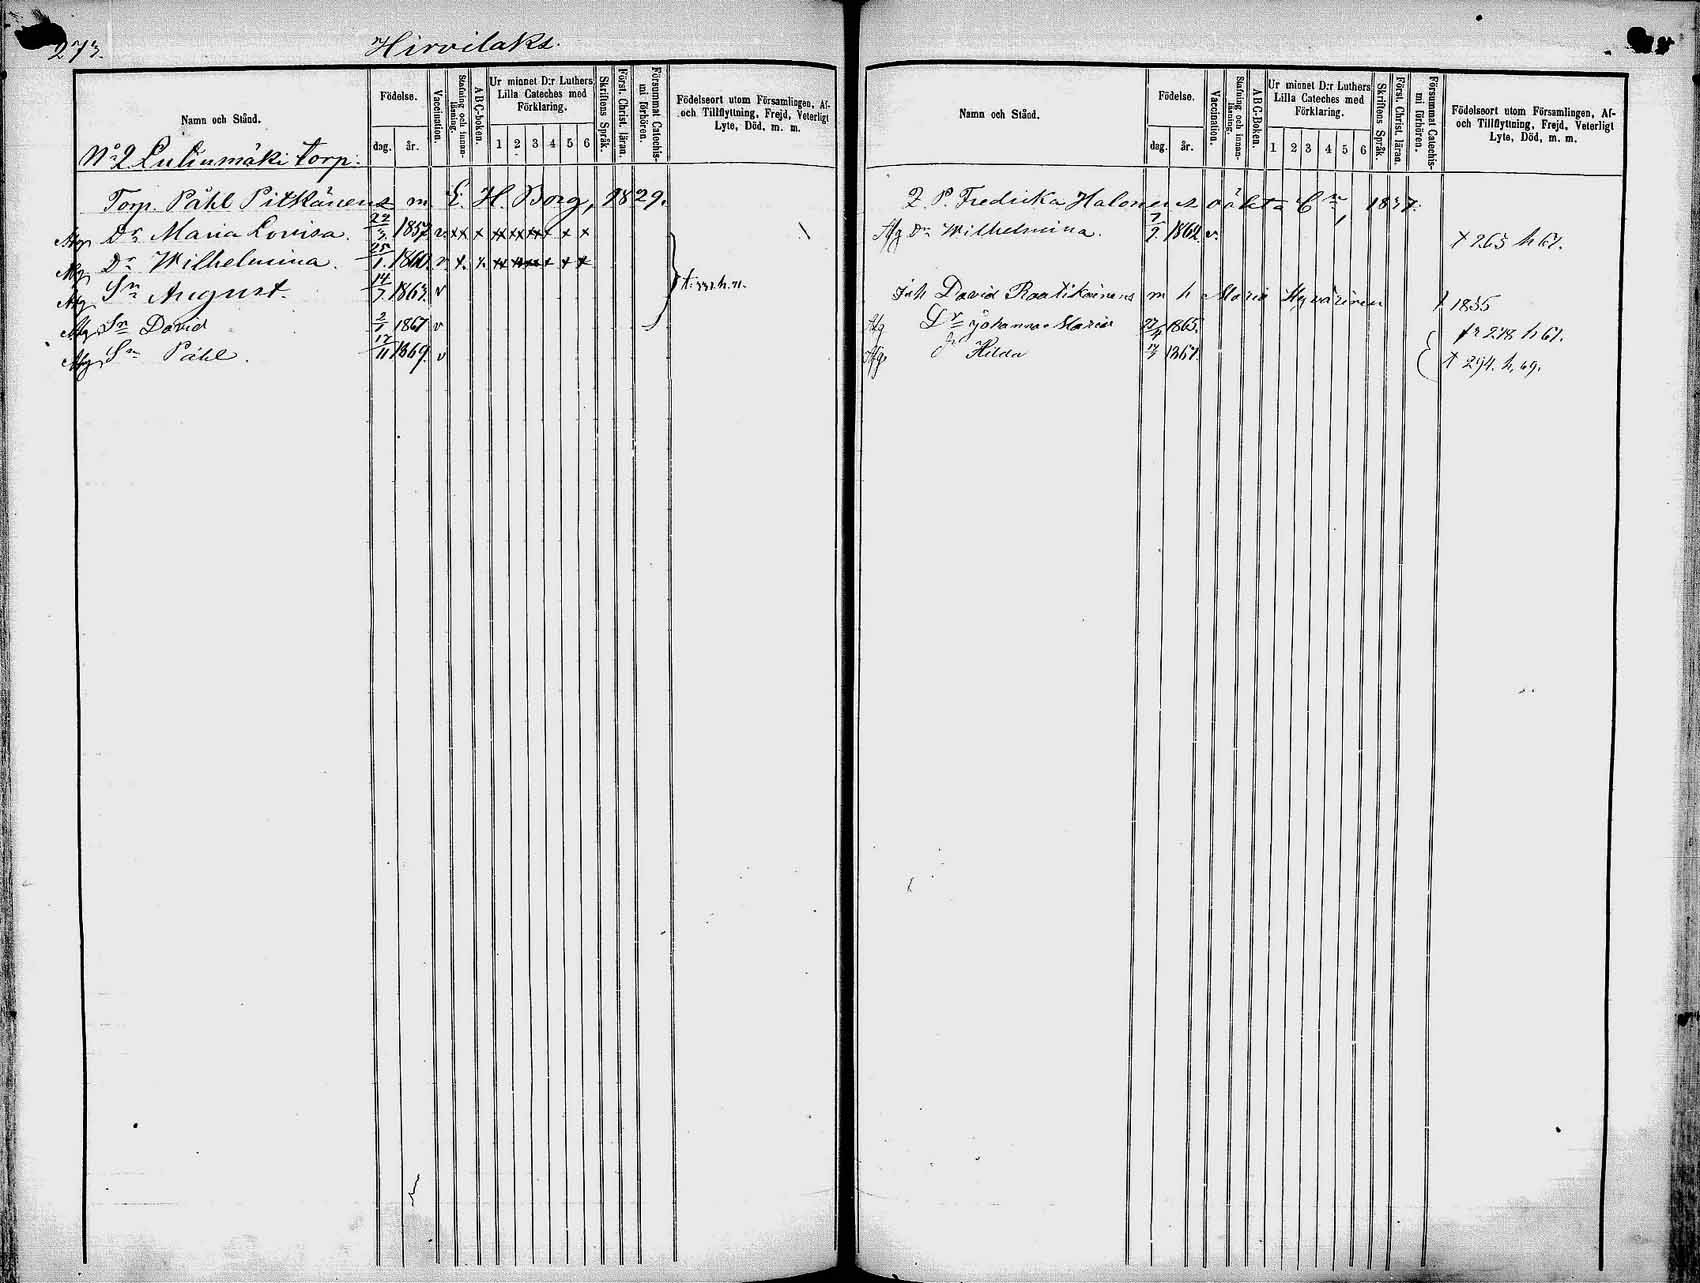 273.
Hirvilaks.
Namn och Stånd.
Födelse.
dag. år.
Vaccination.
Stafning och innan-läsning.
ABC-boken.
Ur minnet D:r Luthers Lilla Cateches med Förklaring.
1 2 3 4 5 6
Skriftens Språk.
Först. Christ. läran.
Försummat Catechis-mi förhören.
Födelseort utom Församlingen, Af- och Tillflyttning, Frejd, Veterligt Lyte, Död, m. m.
No 2 torp.
Torp. Påhl Pitkänens m. E. H. Borg, 1829.
Afg Dr Maria Lovisa. 22/3 1857 v xx x xx xx xx x x x
Afg Dr Wilhelmina. 25/1 1860. v x. x. xx xx xx x x x
Afg Sn August. 14/7 1863. v
Afg Sn David 2/1 1867 v
Afg Sn Påhl. 17/11 1869. v
Namn och Stånd.
Födelse.
dag. år.
Vaccination.
Stafning och innan-läsning.
ABC-Boken.
Ur minnet D:r Luthers Lilla Cateches med Förklaring.
1 2 3 4 5 6
Skriftens Språk.
Först. Christ. läran.
Försummat Catechis-mi förhören.
Födelseort utom Församlingen, Af- och Tillflyttning, Frejd, Veterligt Lyte, Död, m. m.
P. Fredrika Halonens oäkta 1837.
Afg Dr Wilhelmina. 1862 v. 265 h 67.
Inh David Raatikainens m h Maria Hyvärinen 1835
Afg Dr Johanna Maria 1865. 278 h 67.
Afg Hilda 1867. 294. h, 69.